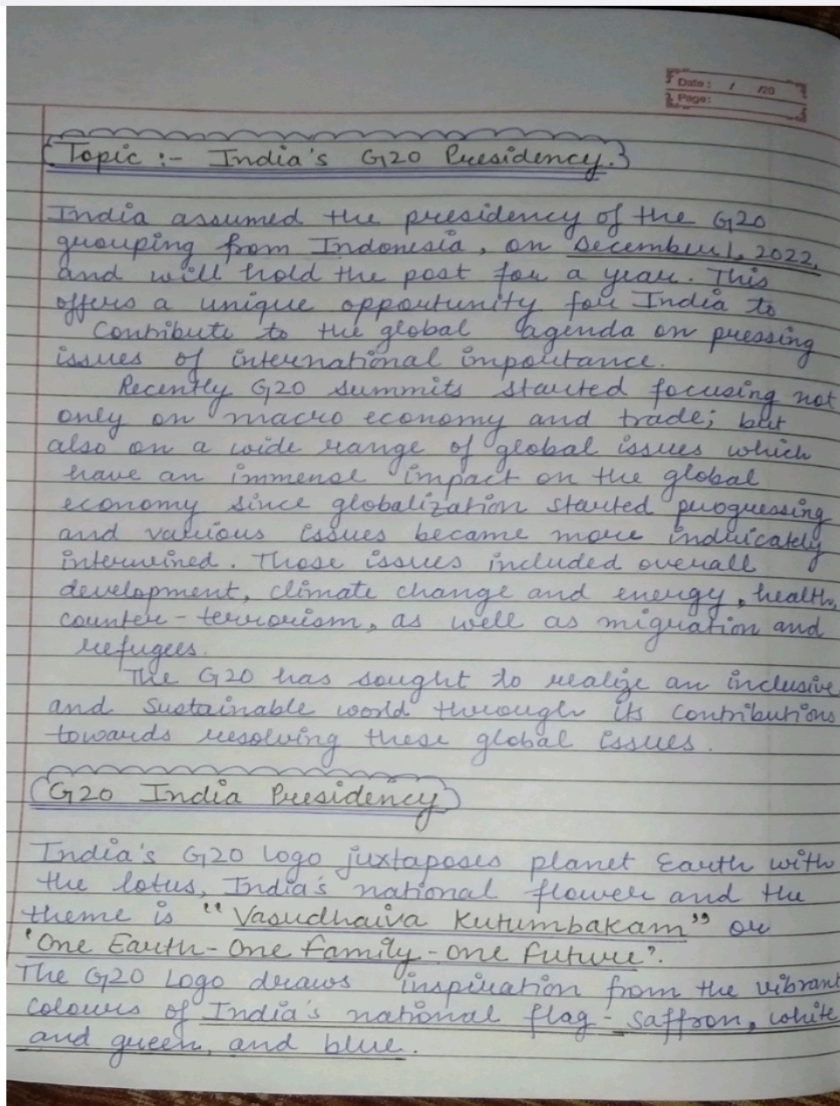 Date : / /20
Page:
Topic :- India's G20 Presidency.
India assumed the presidency of the G20
grouping from Indonesia, on December 1, 2022,
and will hold the post for a year. This
offers a unique opportunity for India to
Contribute to the global agenda on pressing
issues of international importance.
Recently G20 summits started focusing not
only on macro economy and trade; but
also on a wide range of global issues which
have an immense impact on the global
economy since globalization started progressing
and various issues became more indricately
interwined. Those issues included overall
development, climate change and energy, health,
counter-terrorism, as well as migration and
refugees.
The G20 has sought to realize an inclusive
and Sustainable world through its contributions
towards resolving these global issues.
G20 India Presidency
India's G20 logo juxtaposes planet Earth with
the lotus, India's national flower and the
theme is "Vasudhaiva Kutumbakam" or
'One Earth-One family-one future'.
The G20 Logo draws inspiration from the vibrant
colours of India's national flag - saffron, white
and green, and blue.